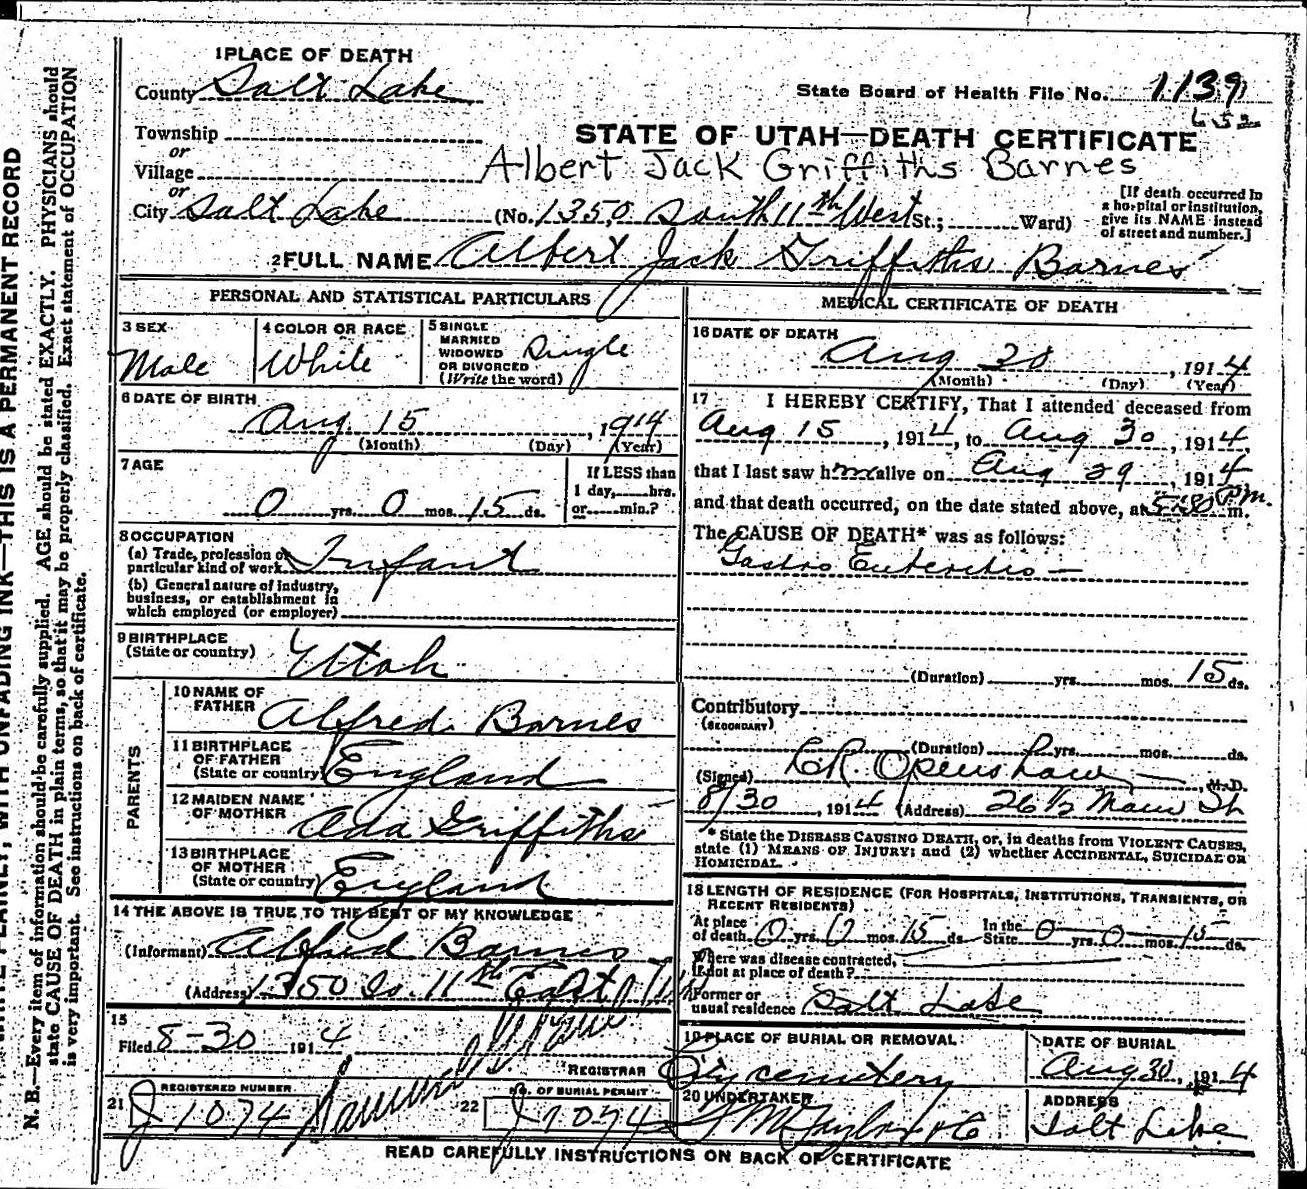 1 PLACE OF DEATH
County Salt Lake
State Board of Health File No. 1139
Township
or
Village
or
City Salt Lake (No. 1350 South 11th West St.; Ward)
STATE OF UTAH—DEATH CERTIFICATE
Albert Jack Griffiths Barnes
[If death occurred in
a hospital or institution,
give its NAME instead
of street and number.]
2 FULL NAME Albert Jack Griffiths Barnes
PERSONAL AND STATISTICAL PARTICULARS
3 SEX Male
4 COLOR OR RACE White
5 SINGLE
MARRIED
WIDOWED
OR DIVORCED
(Write the word) Single
6 DATE OF BIRTH
Aug 15, 1914
(Month) (Day) (Year)
7 AGE
0 yrs. 0 mos. 15 ds.
If LESS than
1 day, hrs.
or min.?
8 OCCUPATION
(a) Trade, profession or
particular kind of work Infant
(b) General nature of industry,
business, or establishment in
which employed (or employer)
9 BIRTHPLACE
(State or country) Utah
PARENTS
10 NAME OF
FATHER Alfred Barnes
11 BIRTHPLACE
OF FATHER
(State or country) England
12 MAIDEN NAME
OF MOTHER Ada Griffiths
13 BIRTHPLACE
OF MOTHER
(State or country) England
14 THE ABOVE IS TRUE TO THE BEST OF MY KNOWLEDGE
(Informant) Alfred Barnes
(Address) 1350 So. 11th East
15
Filed 8-30 1914
REGISTRAR
REGISTERED NUMBER
21 J 1074
NO. OF BURIAL PERMIT
22 J 1074
MEDICAL CERTIFICATE OF DEATH
16 DATE OF DEATH
Aug 30, 1914
(Month) (Day) (Year)
17 I HEREBY CERTIFY, That I attended deceased from
Aug 15, 1914, to Aug 30, 1914,
that I last saw him alive on Aug 29, 1914
and that death occurred, on the date stated above, at 5:30 P.m.
The CAUSE OF DEATH* was as follows:
Gastro Enteritis —
(Duration) yrs. mos. 15 ds.
Contributory
(SECONDARY)
(Duration) yrs. mos. ds.
(Signed) Openshaw, M.D.
8/30, 1914 (Address) 26 1/2 Main St
* State the DISEASE CAUSING DEATH, or, in deaths from VIOLENT CAUSES,
state (1) MEANS OF INJURY; and (2) whether ACCIDENTAL, SUICIDAL OR
HOMICIDAL.
18 LENGTH OF RESIDENCE (FOR HOSPITALS, INSTITUTIONS, TRANSIENTS, OR
RECENT RESIDENTS)
At place
of death 0 yrs. 0 mos. 15 ds. In the
State 0 yrs. 0 mos. 15 ds.
Where was disease contracted,
if not at place of death?
Former or
usual residence Salt Lake
19 PLACE OF BURIAL OR REMOVAL
City cemetery
DATE OF BURIAL
Aug 30, 1914
20 UNDERTAKER
Taylor & Co.
ADDRESS
Salt Lake
READ CAREFULLY INSTRUCTIONS ON BACK OF CERTIFICATE
WRITE PLAINLY, WITH UNFADING INK—THIS IS A PERMANENT RECORD
N. B.—Every item of information should be carefully supplied. AGE should be stated EXACTLY. PHYSICIANS should
state CAUSE OF DEATH in plain terms, so that it may be properly classified. Exact statement of OCCUPATION
is very important. See instructions on back of certificate.